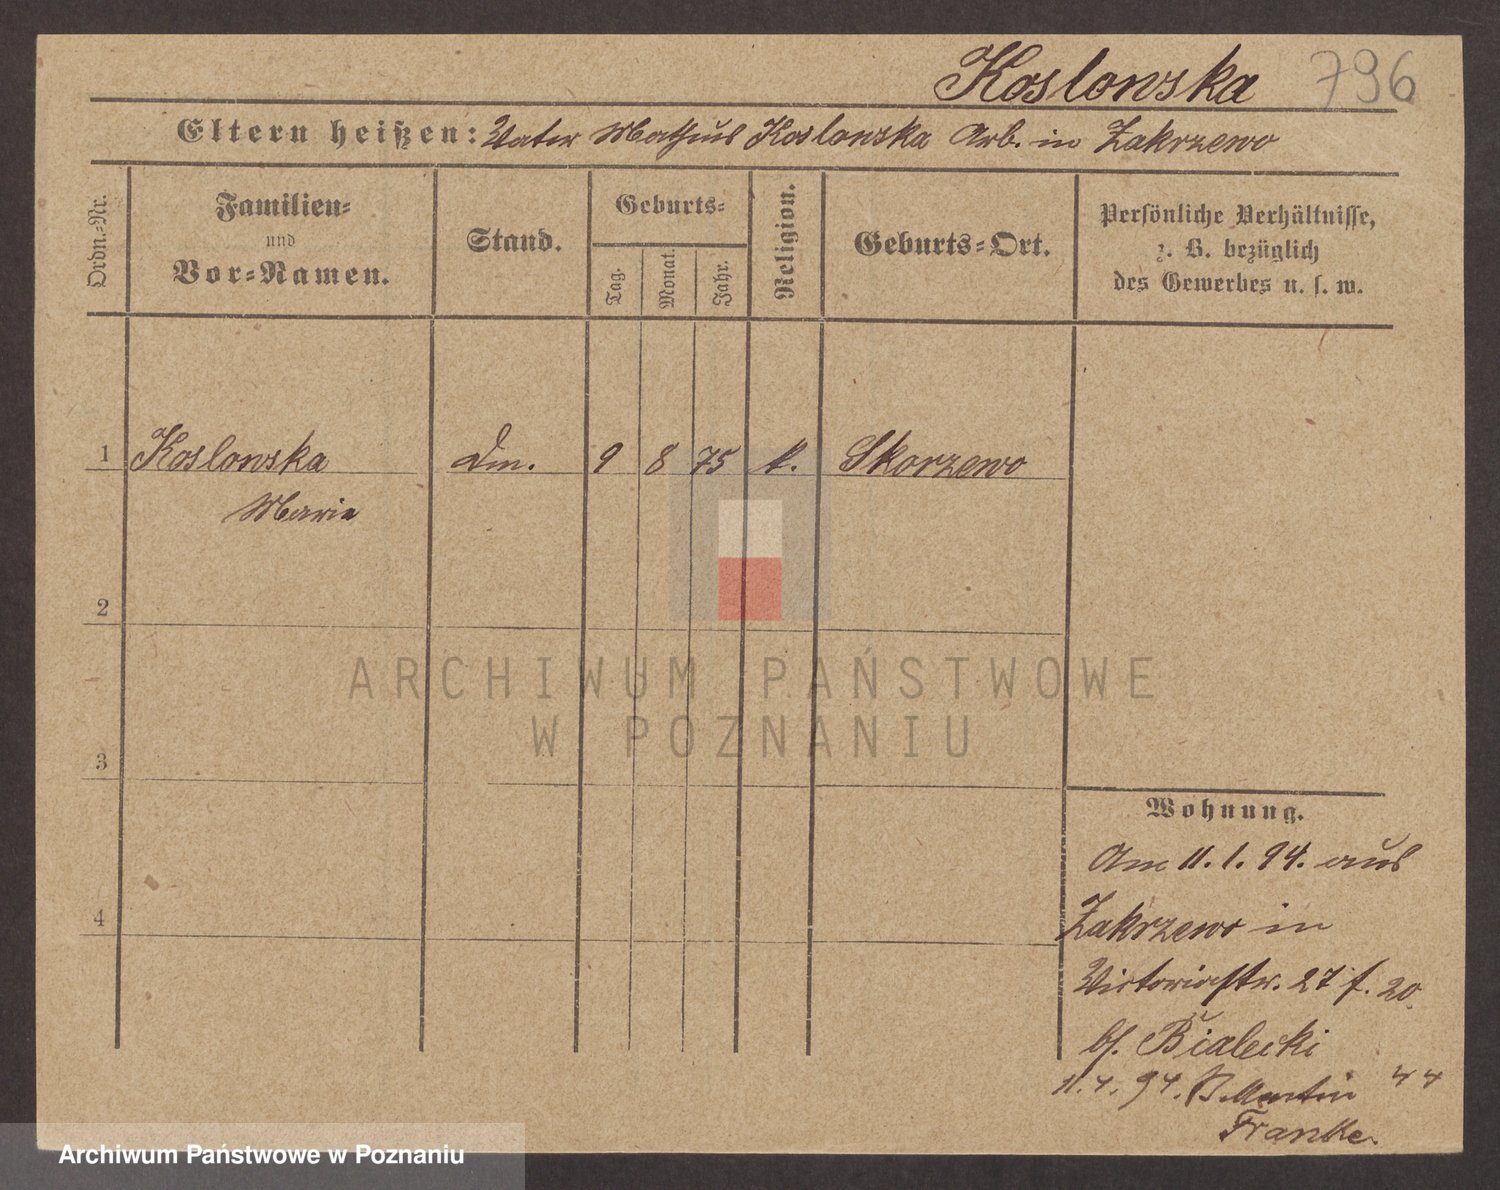 Koslowska 796
Eltern heißen: Vater Mathäus Koslowska Arb. in Zakrzewo
Ordn.-Nr.
Familien-
und
Vor-Namen.
Stand.
Geburts-
Tag.
Monat.
Jahr.
Religion.
Geburts-Ort.
Persönliche Verhältnisse,
z. B. bezüglich
des Gewerbes u. s. w.
1 Koslowska Dm. 9 8 75 k. Skorzewo
Marie
2
3
4
ARCHIWUM PAŃSTWOWE
W POZNANIU
Wohnung.
Am 11. 1. 94. aus
Zakrzewo in
Victoriastr. 27 f. 20.
bf. Bialecki
11. 4. 94. Martin 44
Franke.
Archiwum Państwowe w Poznaniu